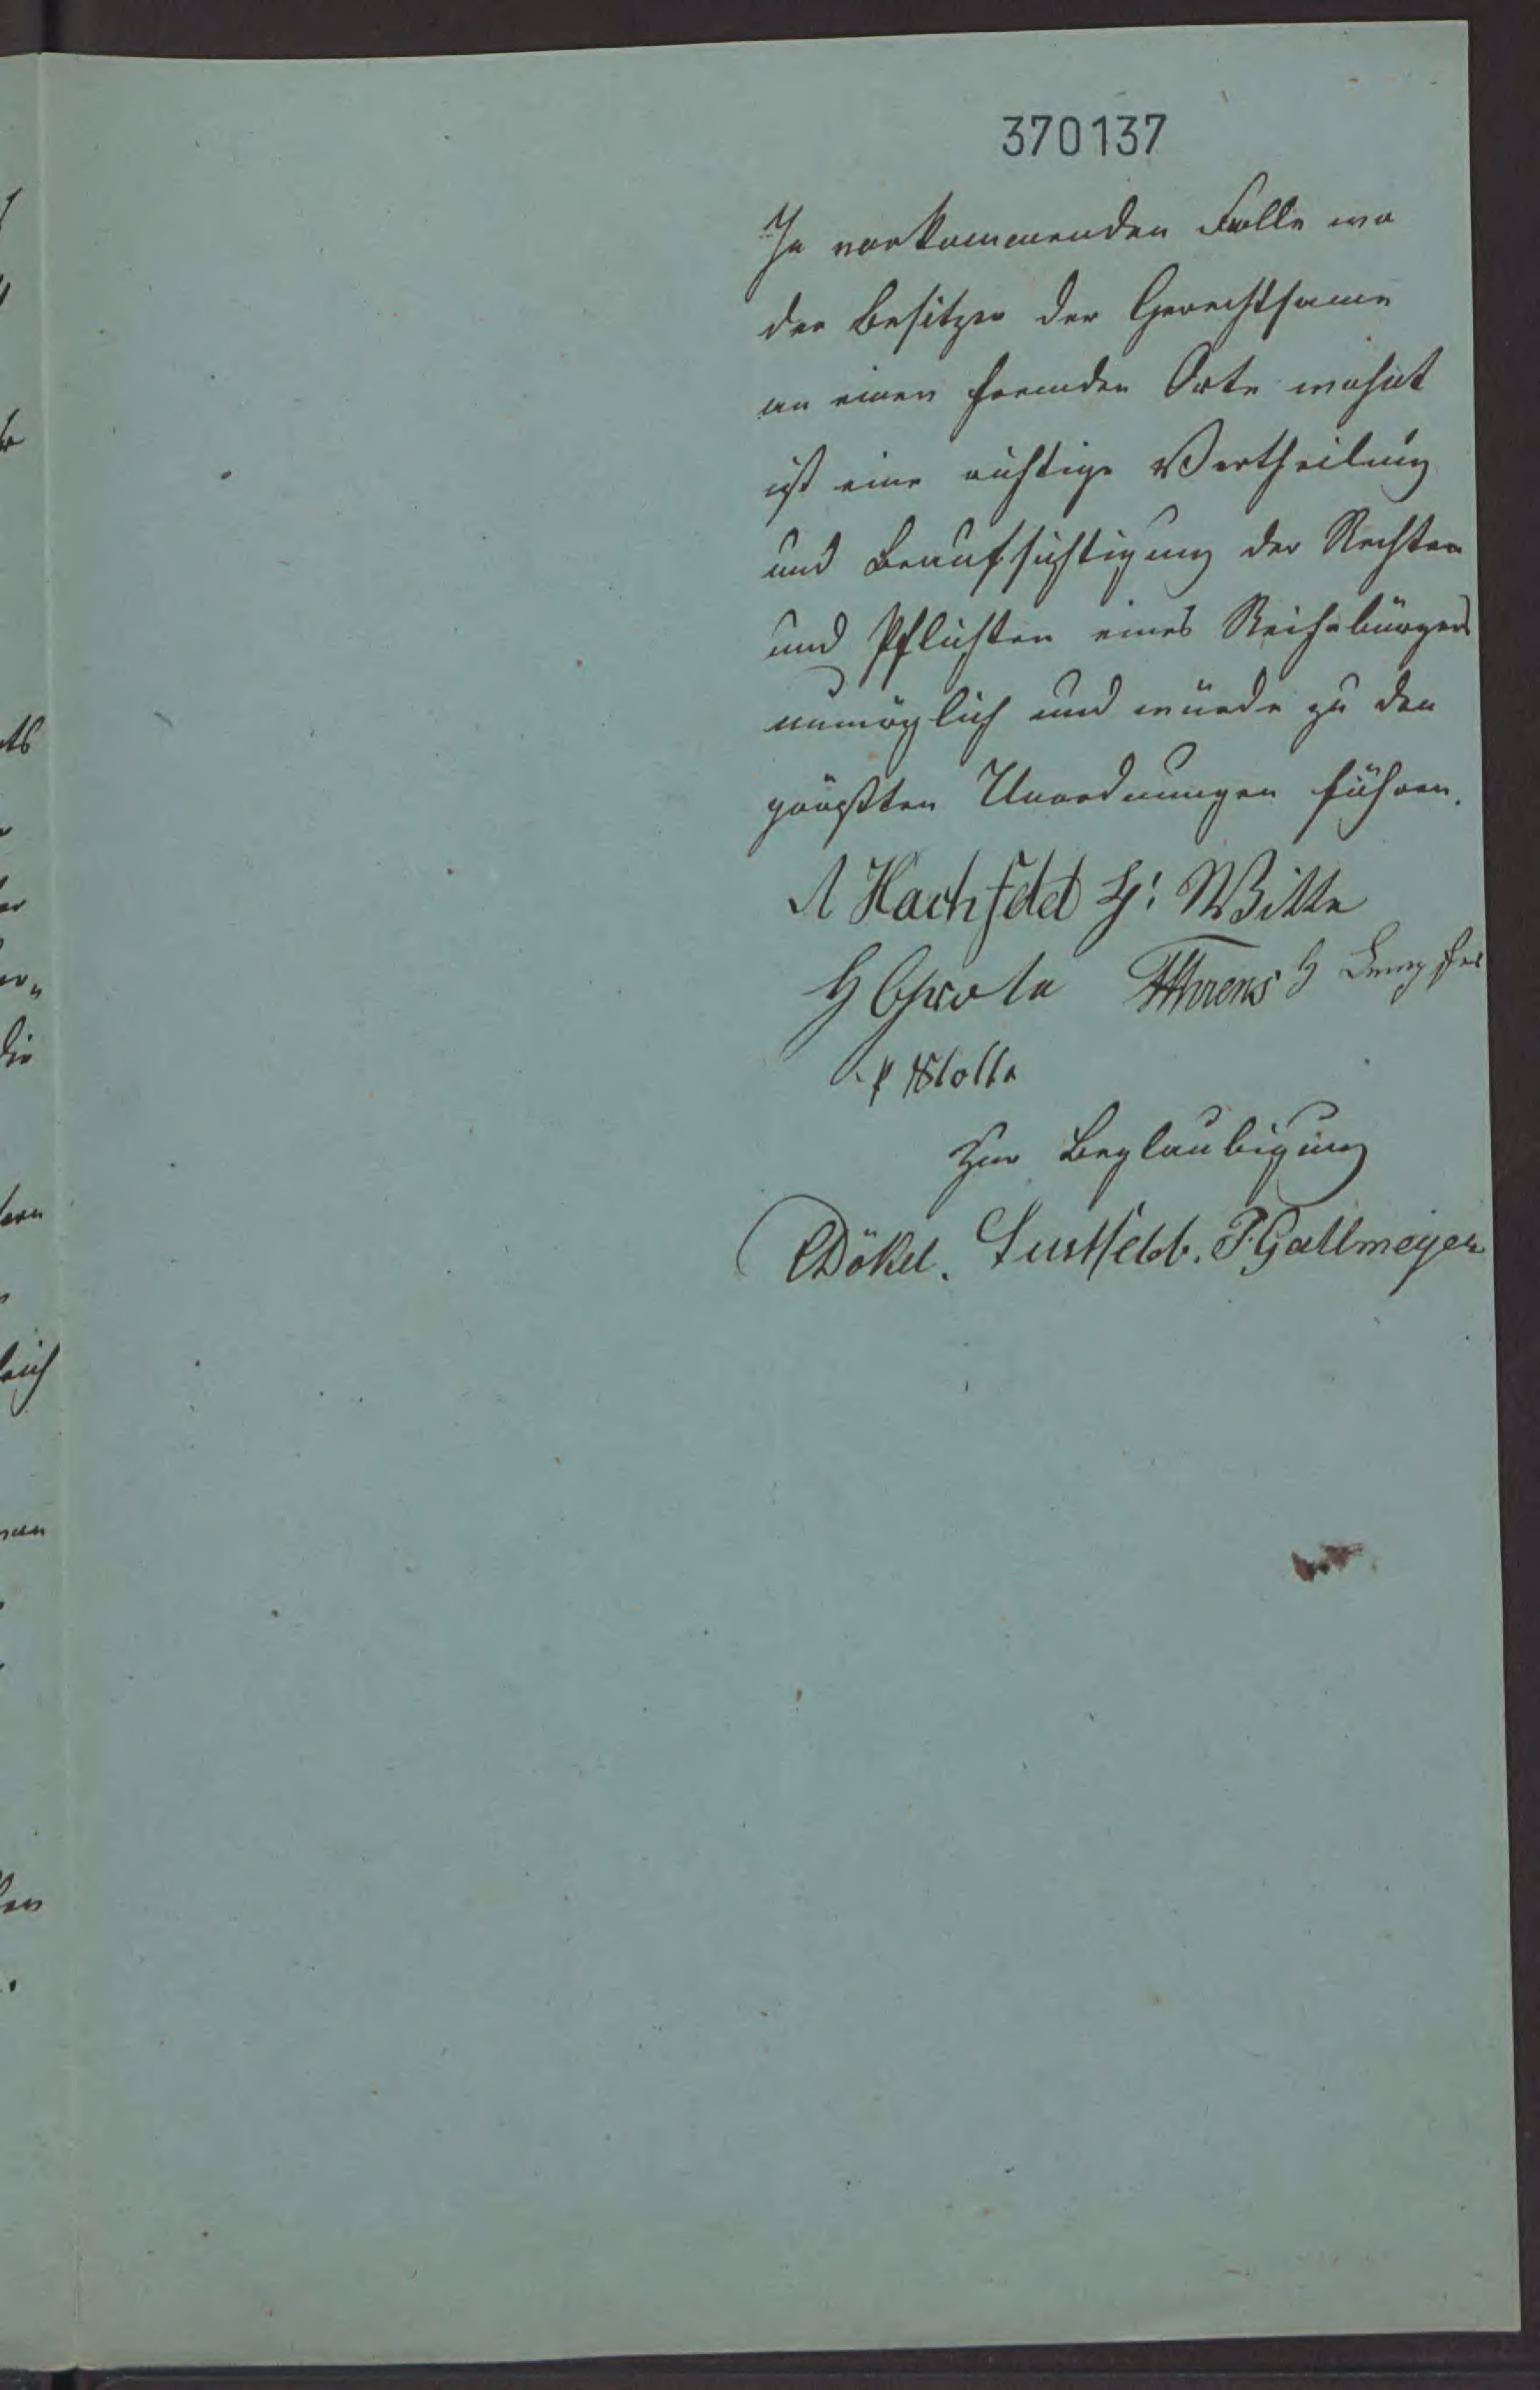 370137
In vorkommenden Falle wo
der Besitzer der Gerechtsame
an einen fremden Orte wohnt
ist eine richtige Vertheilung
und Beaufsichtigung der Rechten
und Pflichten eines Reihebürgers
unmöglich und würde zu den
größten Unordnungen führen.
A Hachfeld H: Witte
H Grote Ahrens H
Nolte
Zur Beglaubigung
Dökel. Lustfeldt. F. Gallmeyer